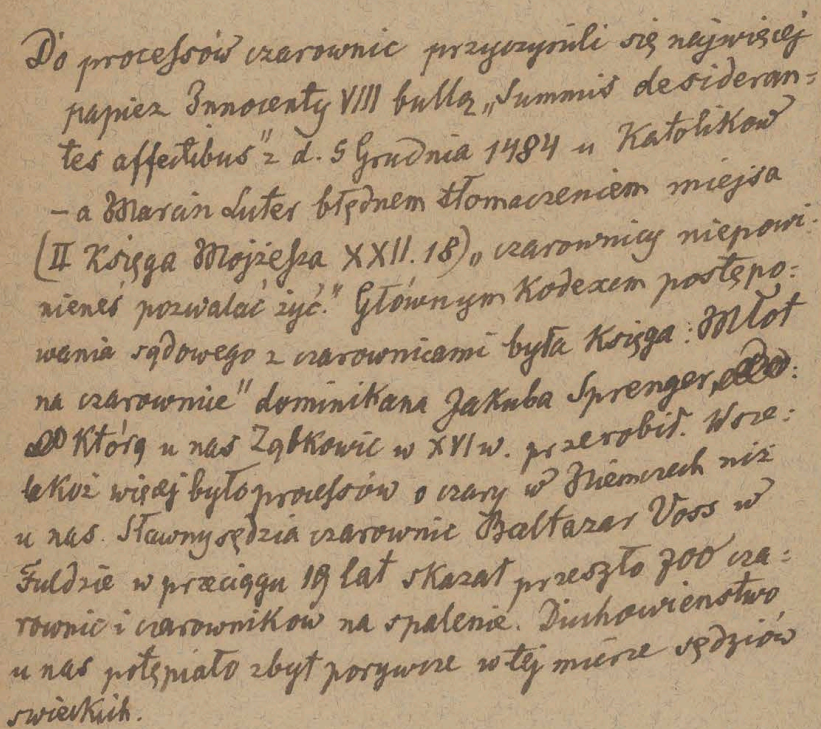 Do processów czarownic przyczynili się najwięcej
papież Innocenty VIII bullą „Summis desideran=
tes affectibus" z d. 5 Grudnia 1484 u Katolików
– a Marcin Luter błędnem tłomaczeniem miejsa
(II Księga Mojżesza XXII. 18) „czarownicy niepowi=
nieneś pozwalać żyć." Głównym Kodexem postępo=
wania sądowego z czarownicami była Księga: Młot
na czarownice" dominikana Jakuba Sprenger
którą u nas Ząbkowic w XVI w. przerobił. Wsze=
lakoż więcej było processów o czary w Niemczech niż
u nas. Sławny sędzia czarownic Baltazar Voss w
Fuldzie w przeciągu 19 lat skazał przeszło 700 cza=
rownic i czarowników na spalenie. Duchowieństwo
u nas potępiało zbyt porywcze w tej mierze sędziów
świeckich.